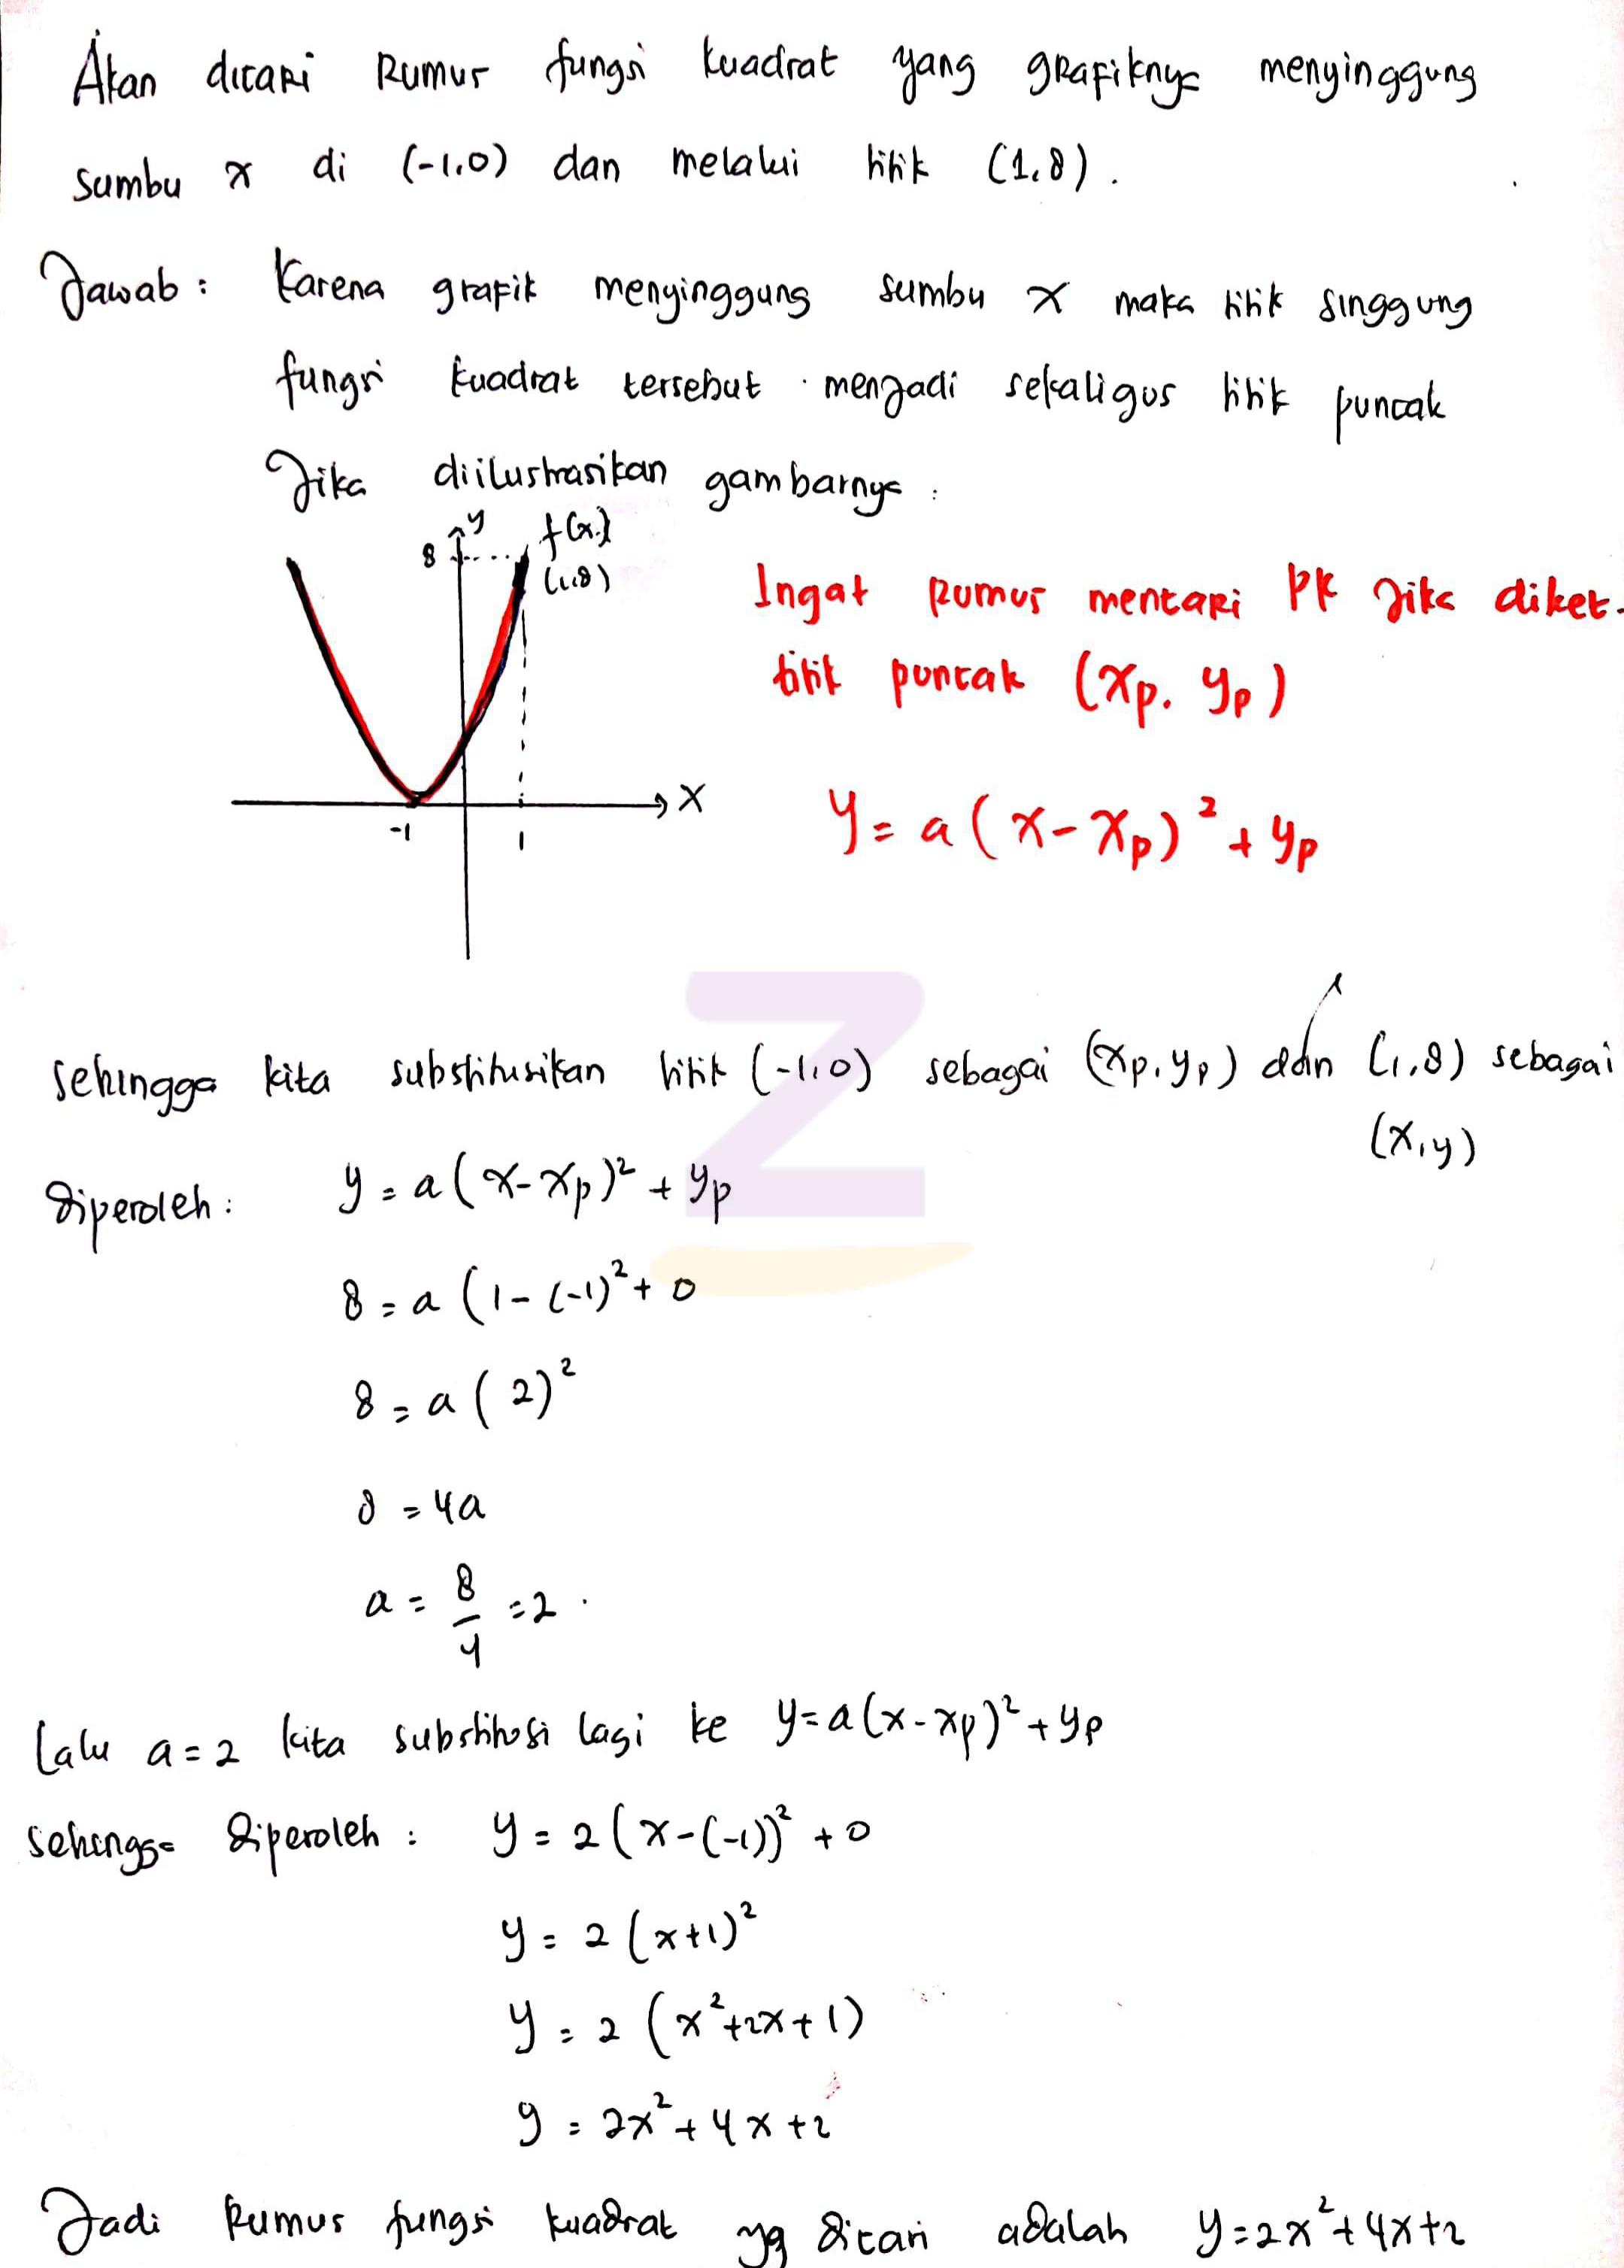 Akan dicari Rumus fungsi kuadrat yang grafiknya menyinggung
sumbu x di (-1,0) dan melalui titik (1,8).
Jawab : Karena grafik menyinggung sumbu x maka titik singgung
fungsi kuadrat tersebut menjadi sekaligus titik puncak
Jika diilustrasikan gambarnya :
y
f(x)
8
(1,8)
X
-1
1
Ingat rumus mencari PK jika diket.
titik puncak (xp, yp)
y = a(x-xp)² + yp
Sehingga kita substitusikan titik (-1,0) sebagai (xp,yp) dan (1,8) sebagai
(x,y)
Diperoleh : y = a(x-xp)² + yp
8 = a (1-(-1)² + 0
8 = a (2)²
8 = 4a
a = 8/4 = 2.
Lalu a=2 kita substitusi lagi ke y=a(x-xp)²+yp
sehingga diperoleh : y = 2(x-(-1))² + 0
y = 2(x+1)²
y = 2(x²+2x+1)
y = 2x²+4x+2
Jadi Rumus fungsi kuadrat yg dicari adalah y=2x²+4x+2
Z